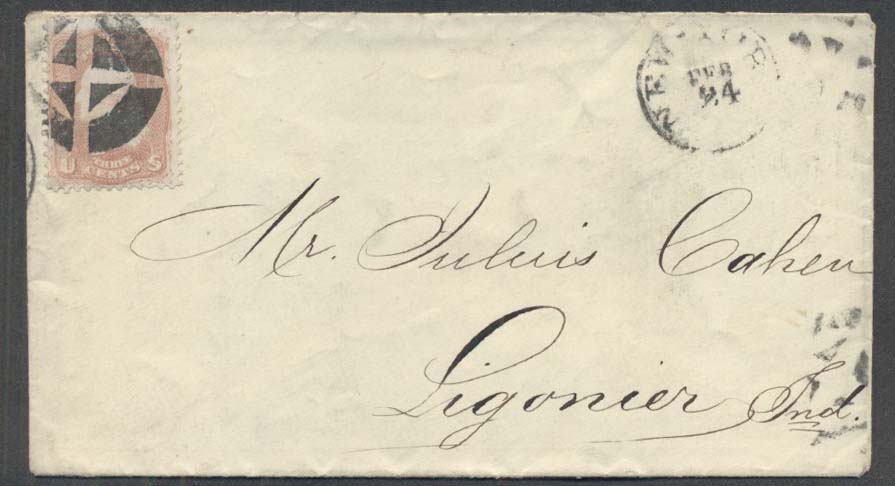 NEW YORK
FEB
24
U THREE CENTS S
Mr. Cahen
Ligonier Ind.